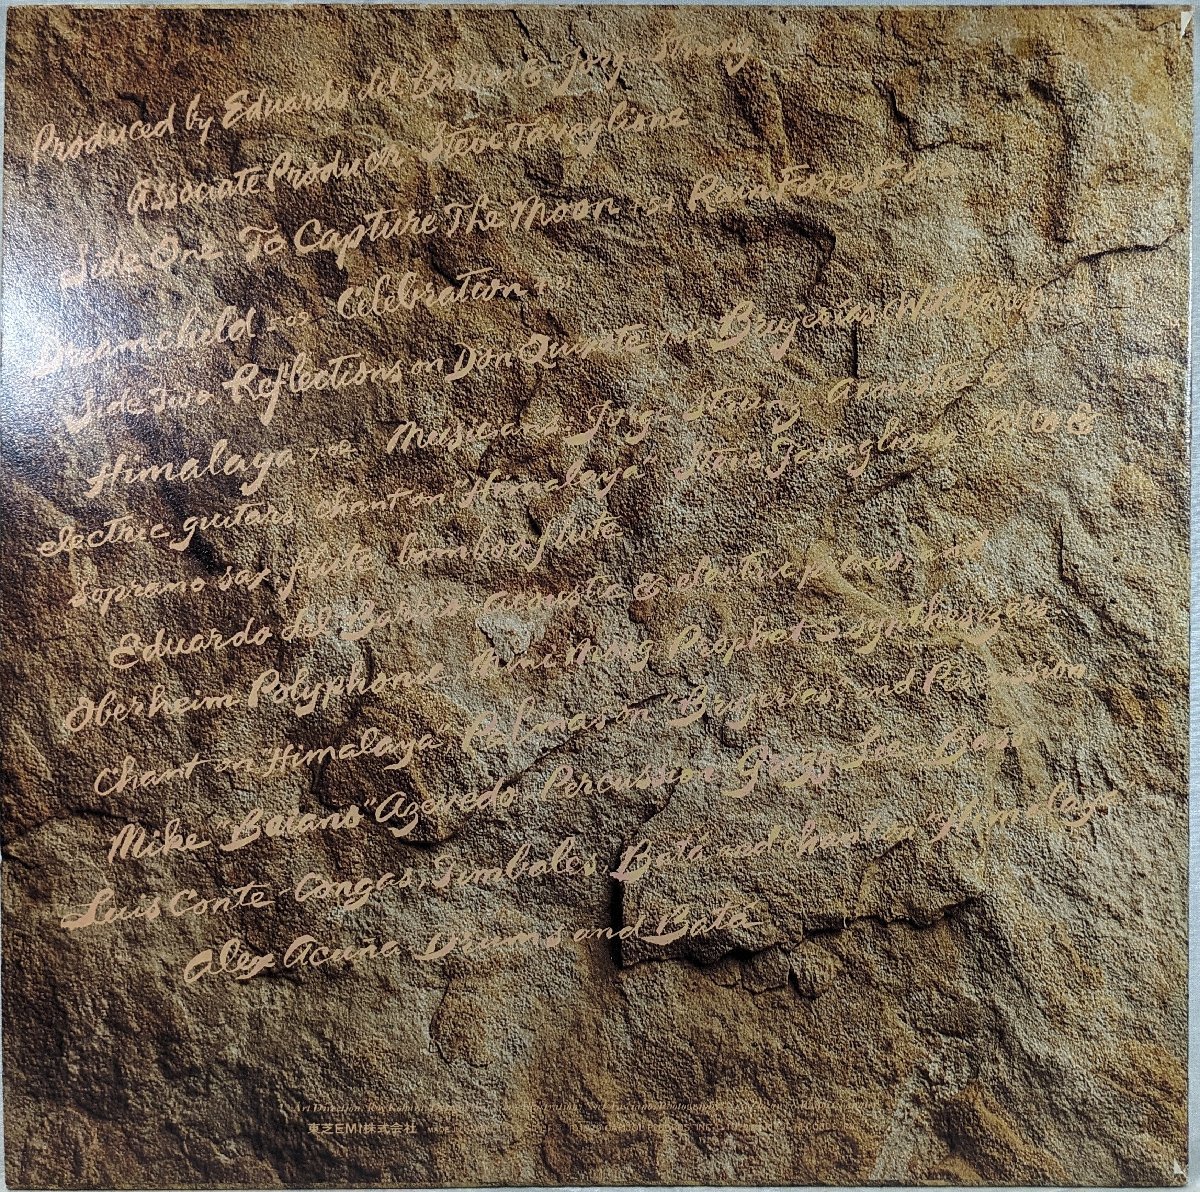 Produced by Eduardo del Barrio & Jorge Strunz
Associate Producer Steve Tavaglione
Side One To Capture The Moon Rain Forest
Dreamchild Celebration
Side Two Reflections on Don Quixote Brujerias
Himalaya Musicians Jorge Strunz acoustic &
electric guitars chant on "Himalaya" Steve Tavaglione alto &
soprano sax flute bamboo flute
Eduardo del Barrio acoustic & electric pianos, and
Oberheim Polyphonic Mini Moog Prophet 5 synthesizers
Chant on Himalaya, Palmas on "Brujerias, and Percussion
Mike "Baiano" Azevedo Percussion Gregg Lee - Bass
Luis Conte - Congas, Timbales, Batá and chant on "Himalaya
Alex Acuña Drums and Batá
Art Direction:
東芝EMI株式会社